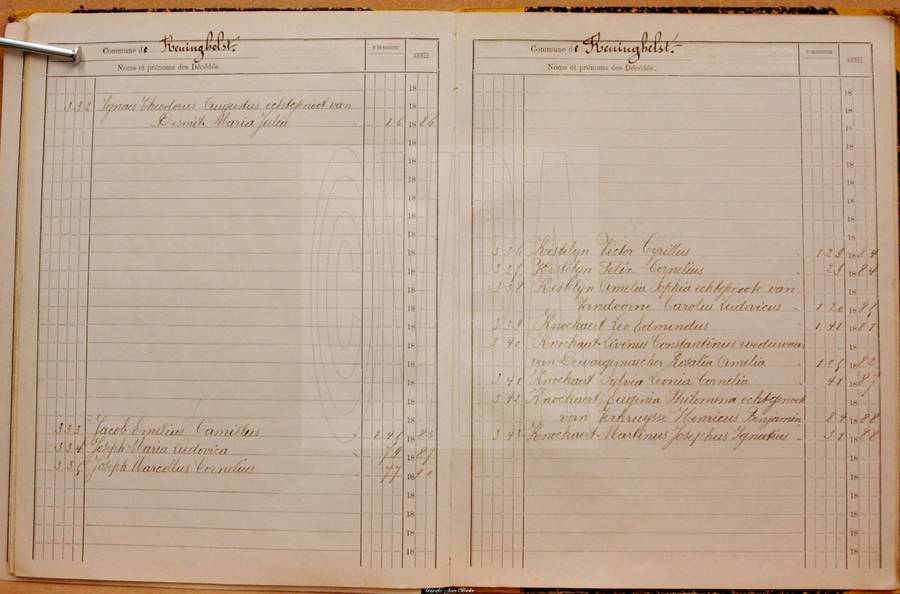 Commune de Reninghelst.
Noms et prénoms des Décédés.
ANNÉE.
332 Ignaes Theodorus Augustus echtgenoot van
Desmit Maria Julia 16 1886
333 Jacob Emelius Camillus 1885
334 Joseph Maria Ludovica 79 1887
335 Joseph Marcellus Cornelius 77 1890
Commune de Reninghelst.
Noms et prénoms des Décédés.
ANNÉE.
336 Kestelyn Victor Cyrillus 123 1884
337 Kestelyn Felix Cornelius 23 1884
338 Kestelyn Amelia Sophia echtgenoote van
Vandoorne Carolus Ludovicus 120 1885
339 Knockaert Leo Edmundus 141 1881
340 Knockaert Livinus Constantinus weduwaar
van Rosalia Amelia 1882
341 Knockaert Sylvia Leonia Cornelia 41 1887
342 Knockaert Eugenia Philomena echtgenoote
van Henricus Benjamin 84 1888
343 Knockaert Martinus Josephus Ignatius 1888